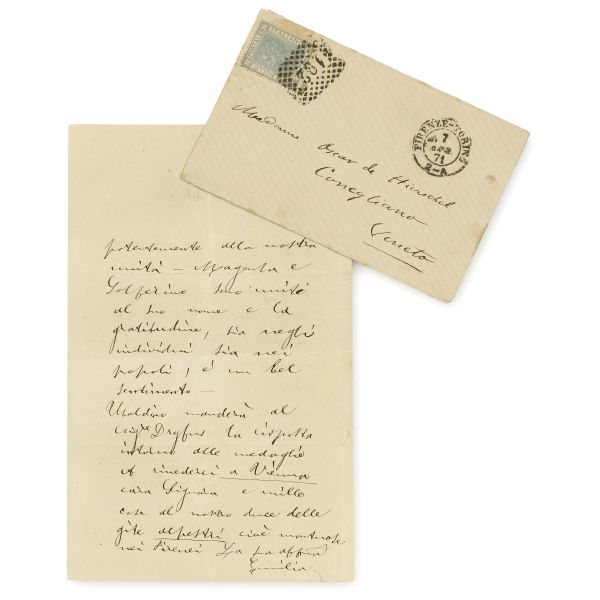 192
FIRENZE-TORINO
7
APR.
71
2-A
Madame Oscar de Hierschel
Conegliano
Veneto
potentemente alla nostra
unità – Magenta e
Solferino sono uniti
al suo nome e la
gratitudine, sia negli
individui sia nei
popoli, è un bel
sentimento –
Ubaldino manderà al
Sigre Dryfus la risposta
intorno alle medaglie
A rivederci a Vienna
cara Signora e mille
cose al nostro duce delle
gite alpestri cioè montuose
nei Pirenei La sua affma
Emilia